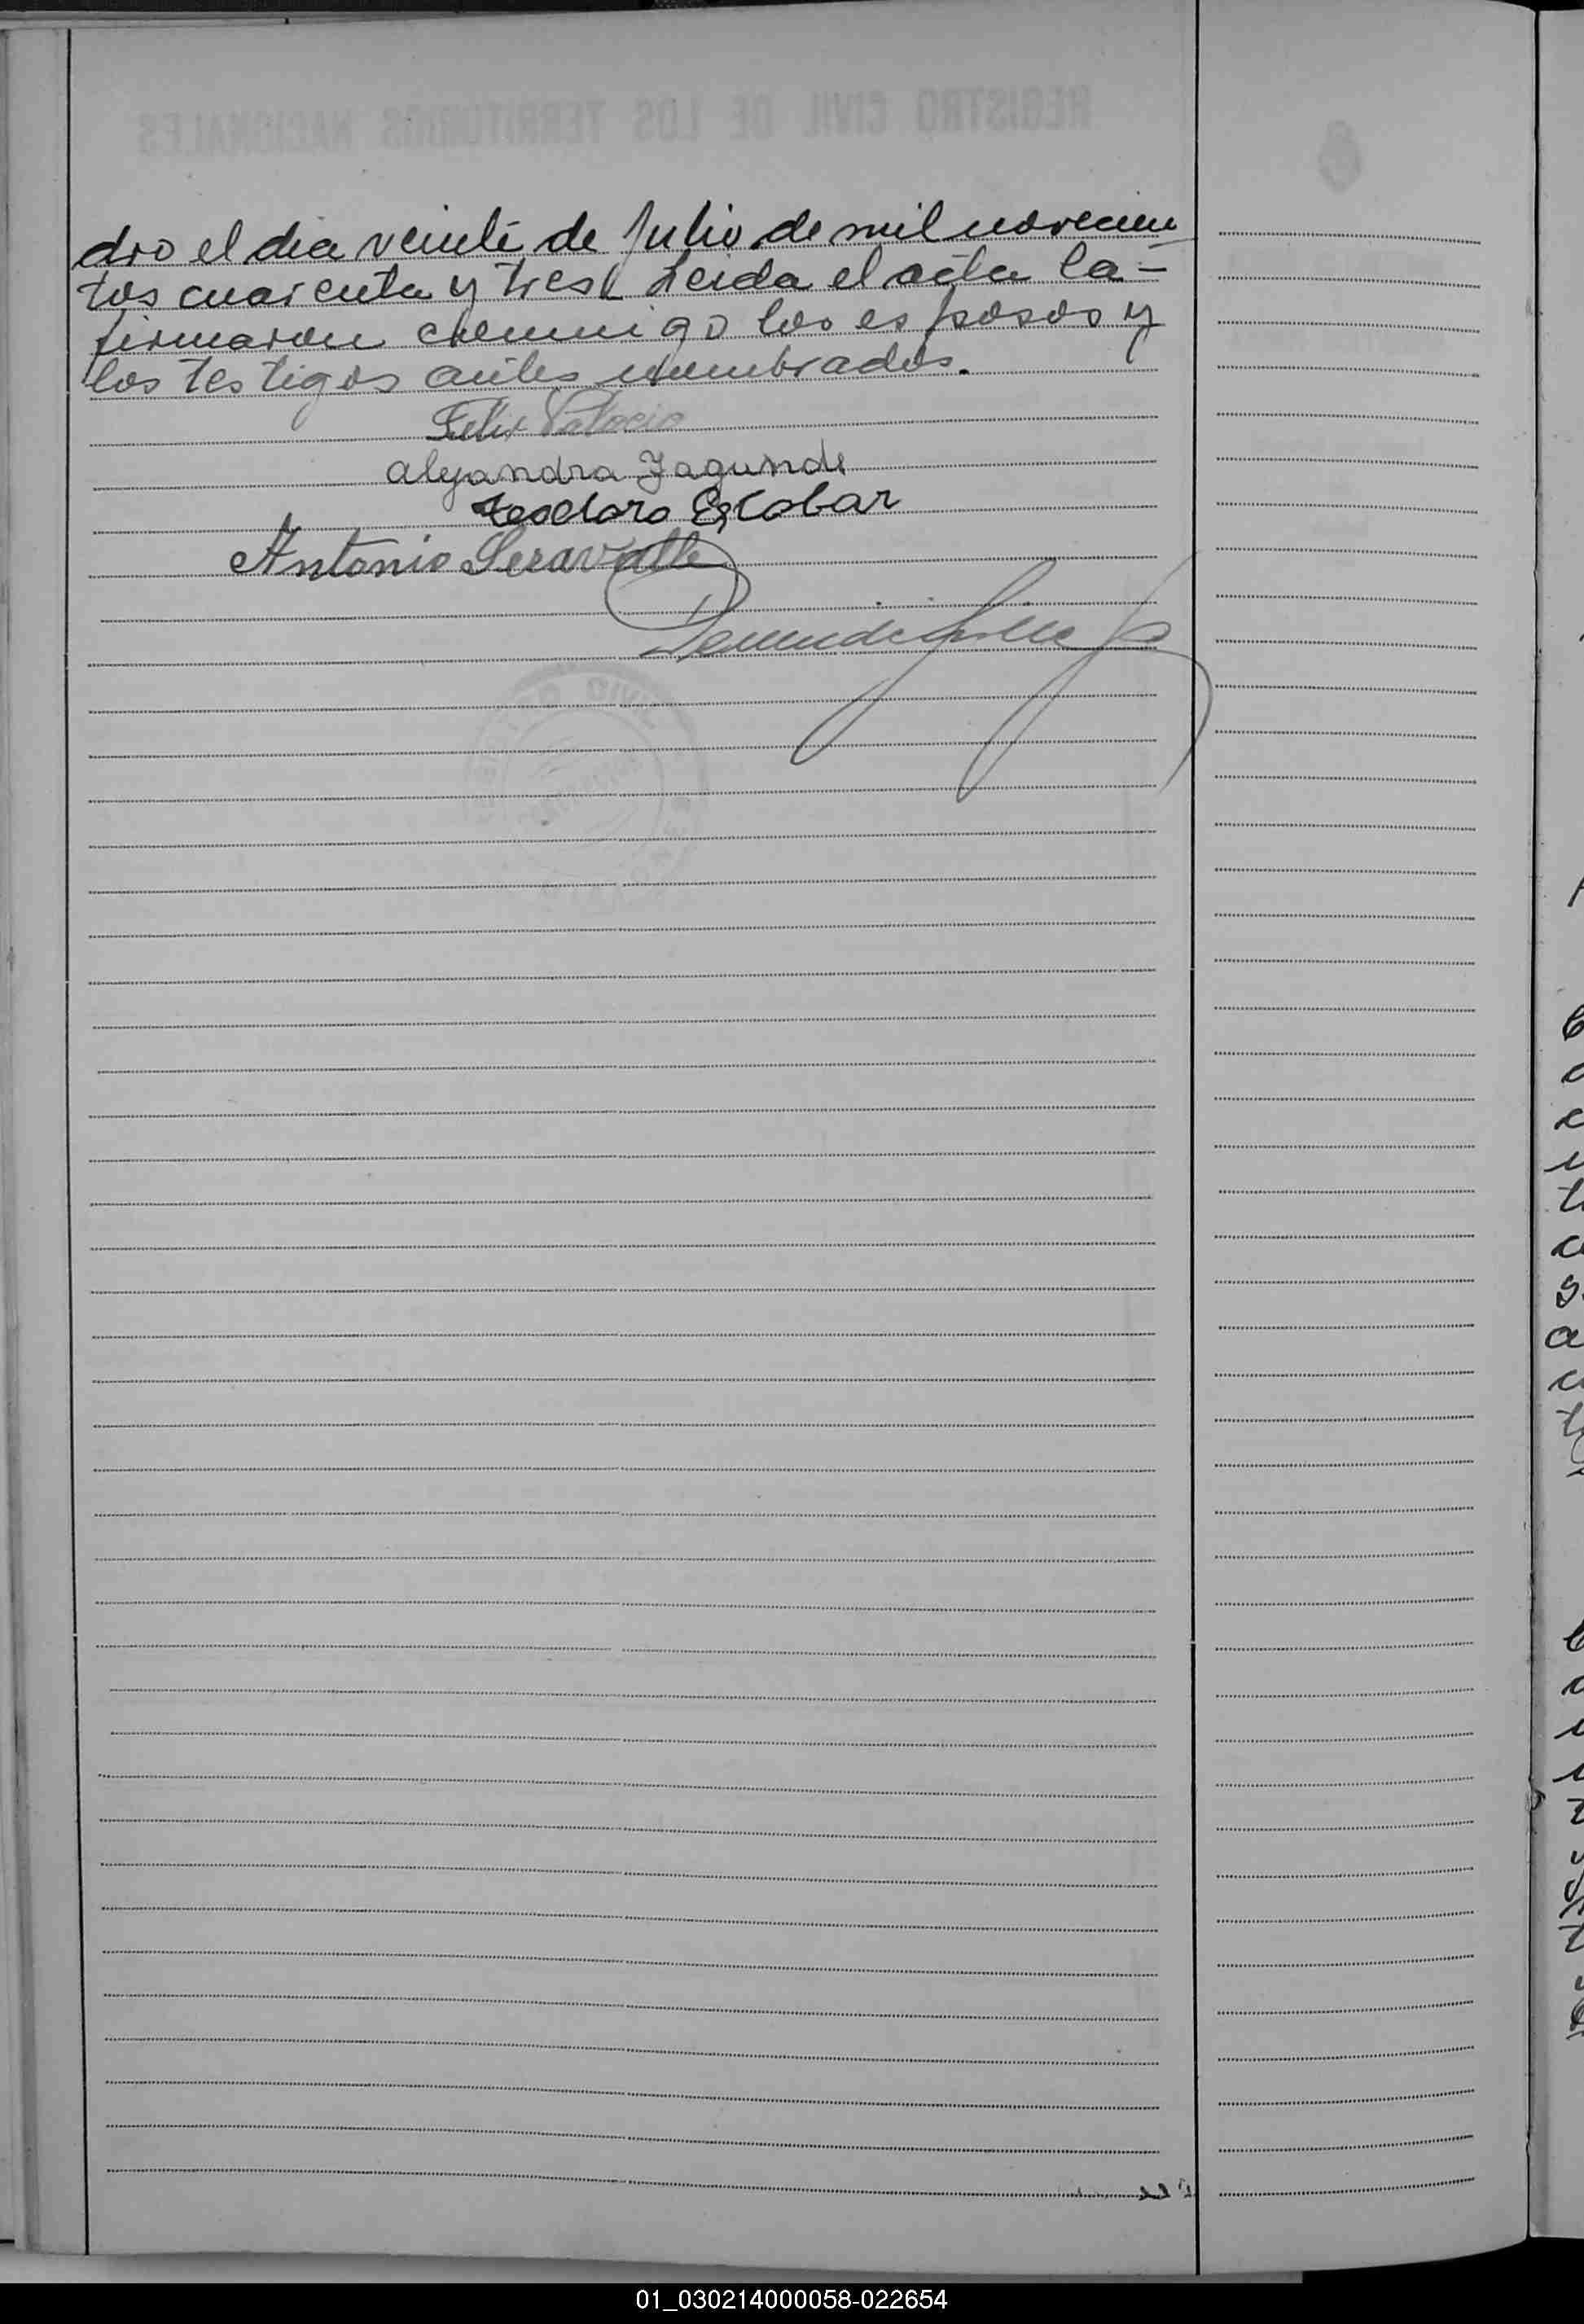 dro el dia veinte de Julio de mil novecien
tos cuarenta y tres. Leida el acta la -
firmaron conmigo los esposos y
los testigos antes nombrados.
Felix Palacio
Alejandra Fagunde
Teodoro Escobar
Antonio Seravalle
01_030214000058-022654